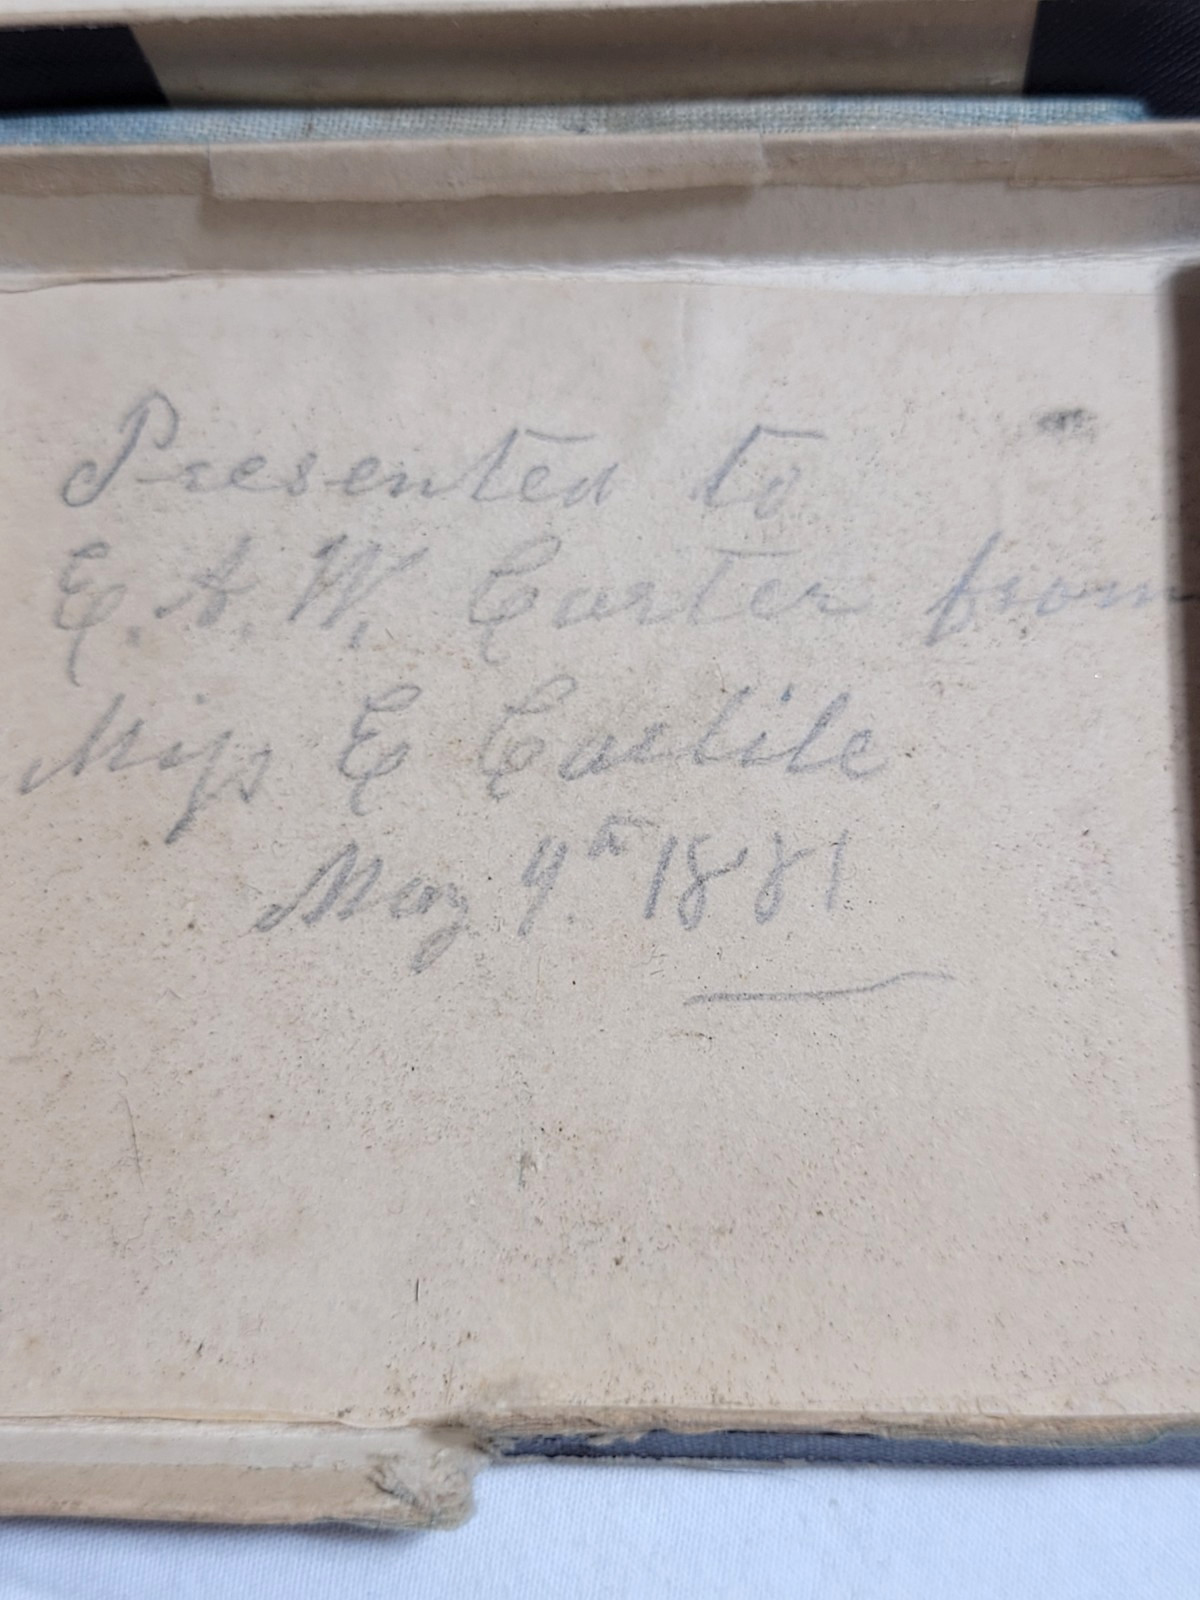 Presented to
E. A. W. Carter from
Miss E Carlile
May 9th 1881